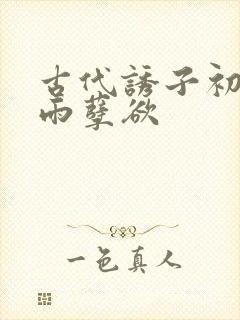 古代誘子初
雨孽欲
一色真人